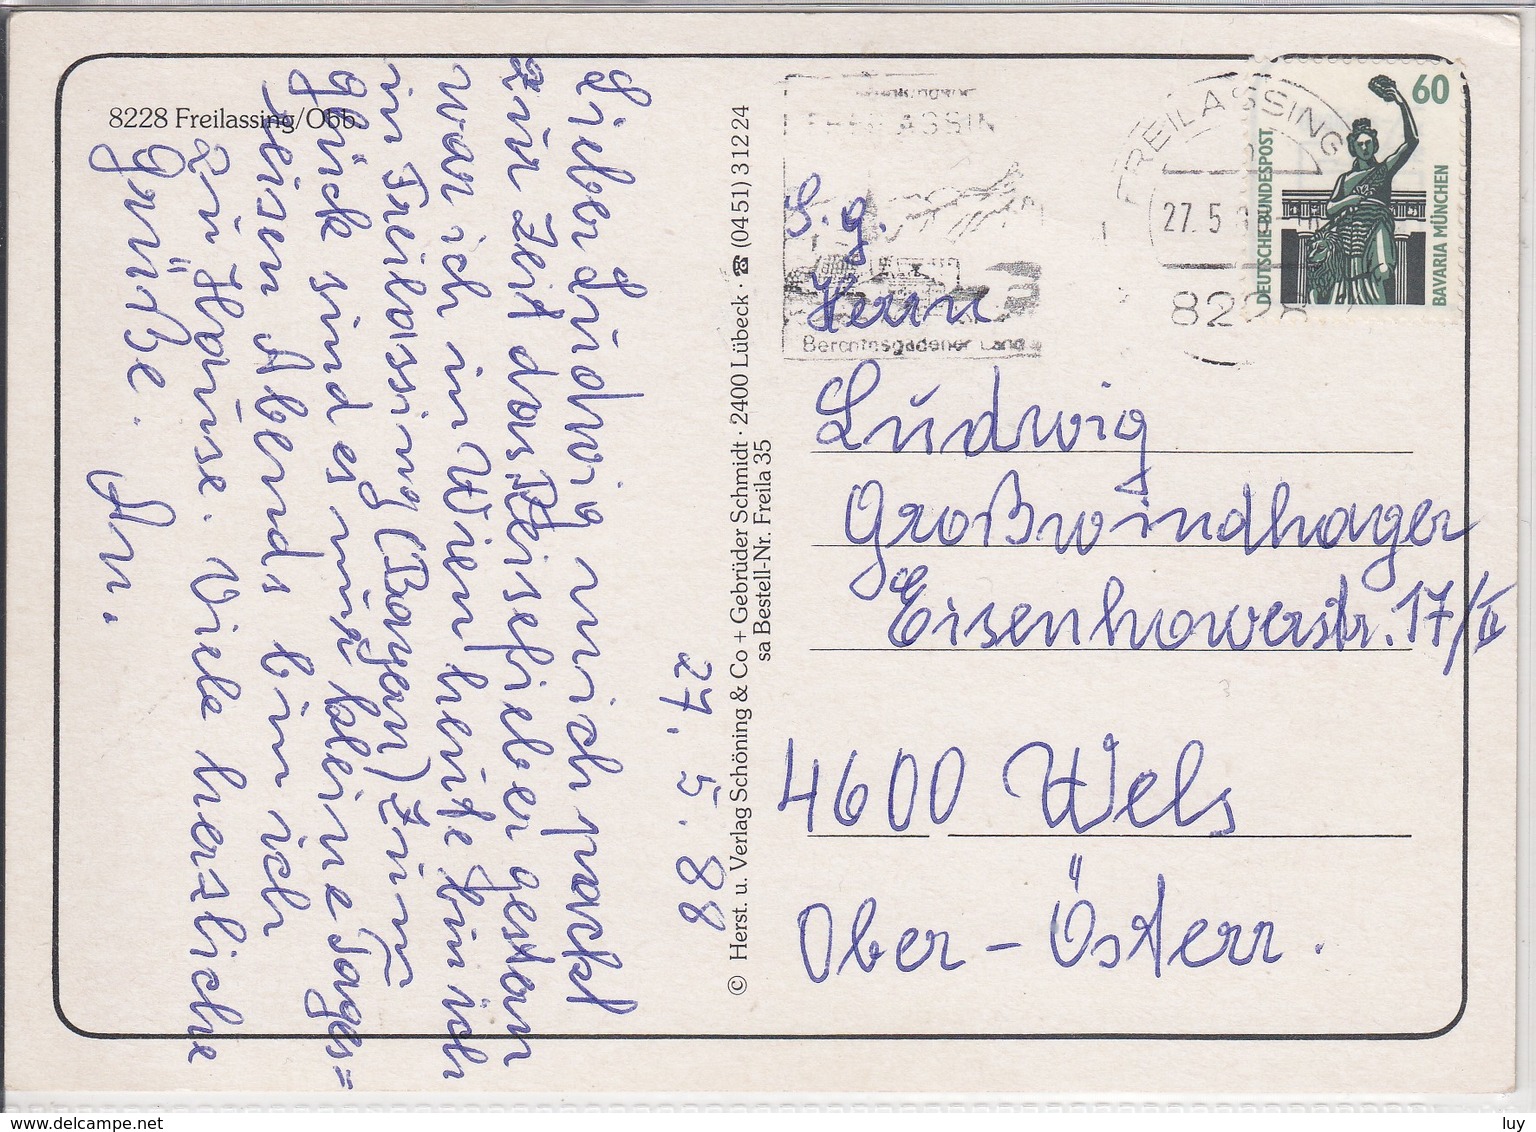 8228 Freilassing/Obb.
Lieber Ludwig mich packt
zur Zeit das Reisefieber gestern
war ich in Wien heute bin ich
in Freilassing (Bayern) zum
Glück sind es nur kleine Tages=
reisen Abends bin ich
zu Hause. Viele herzliche
Grüße.
27. 5. 88
© Herst. u. Verlag Schöning & Co + Gebrüder Schmidt · 2400 Lübeck · ☎ (0451) 31224
sa Bestell-Nr. Freila 35
Berchtesgadener Land
FREILASSING
27. 5
8228
60
DEUTSCHE BUNDESPOST
BAVARIA MÜNCHEN
S. g.
Herrn
Ludwig
Großwindhager
Eisenhowerstr. 17/II
4600 Wels
Ober-Österr.
www.delcampe.net
luy